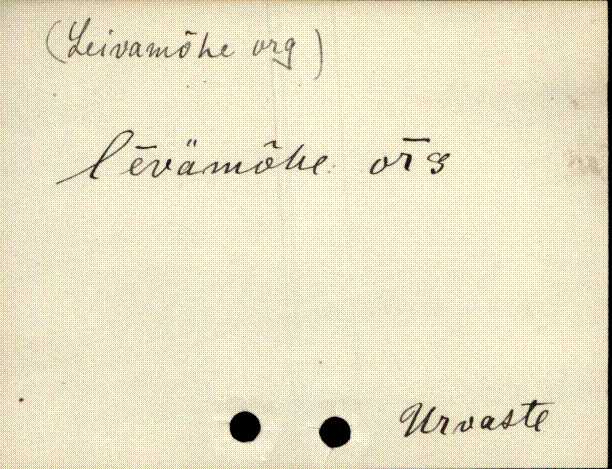 (Leivamõhe org)
lēvämõhe or̄g
Urvaste